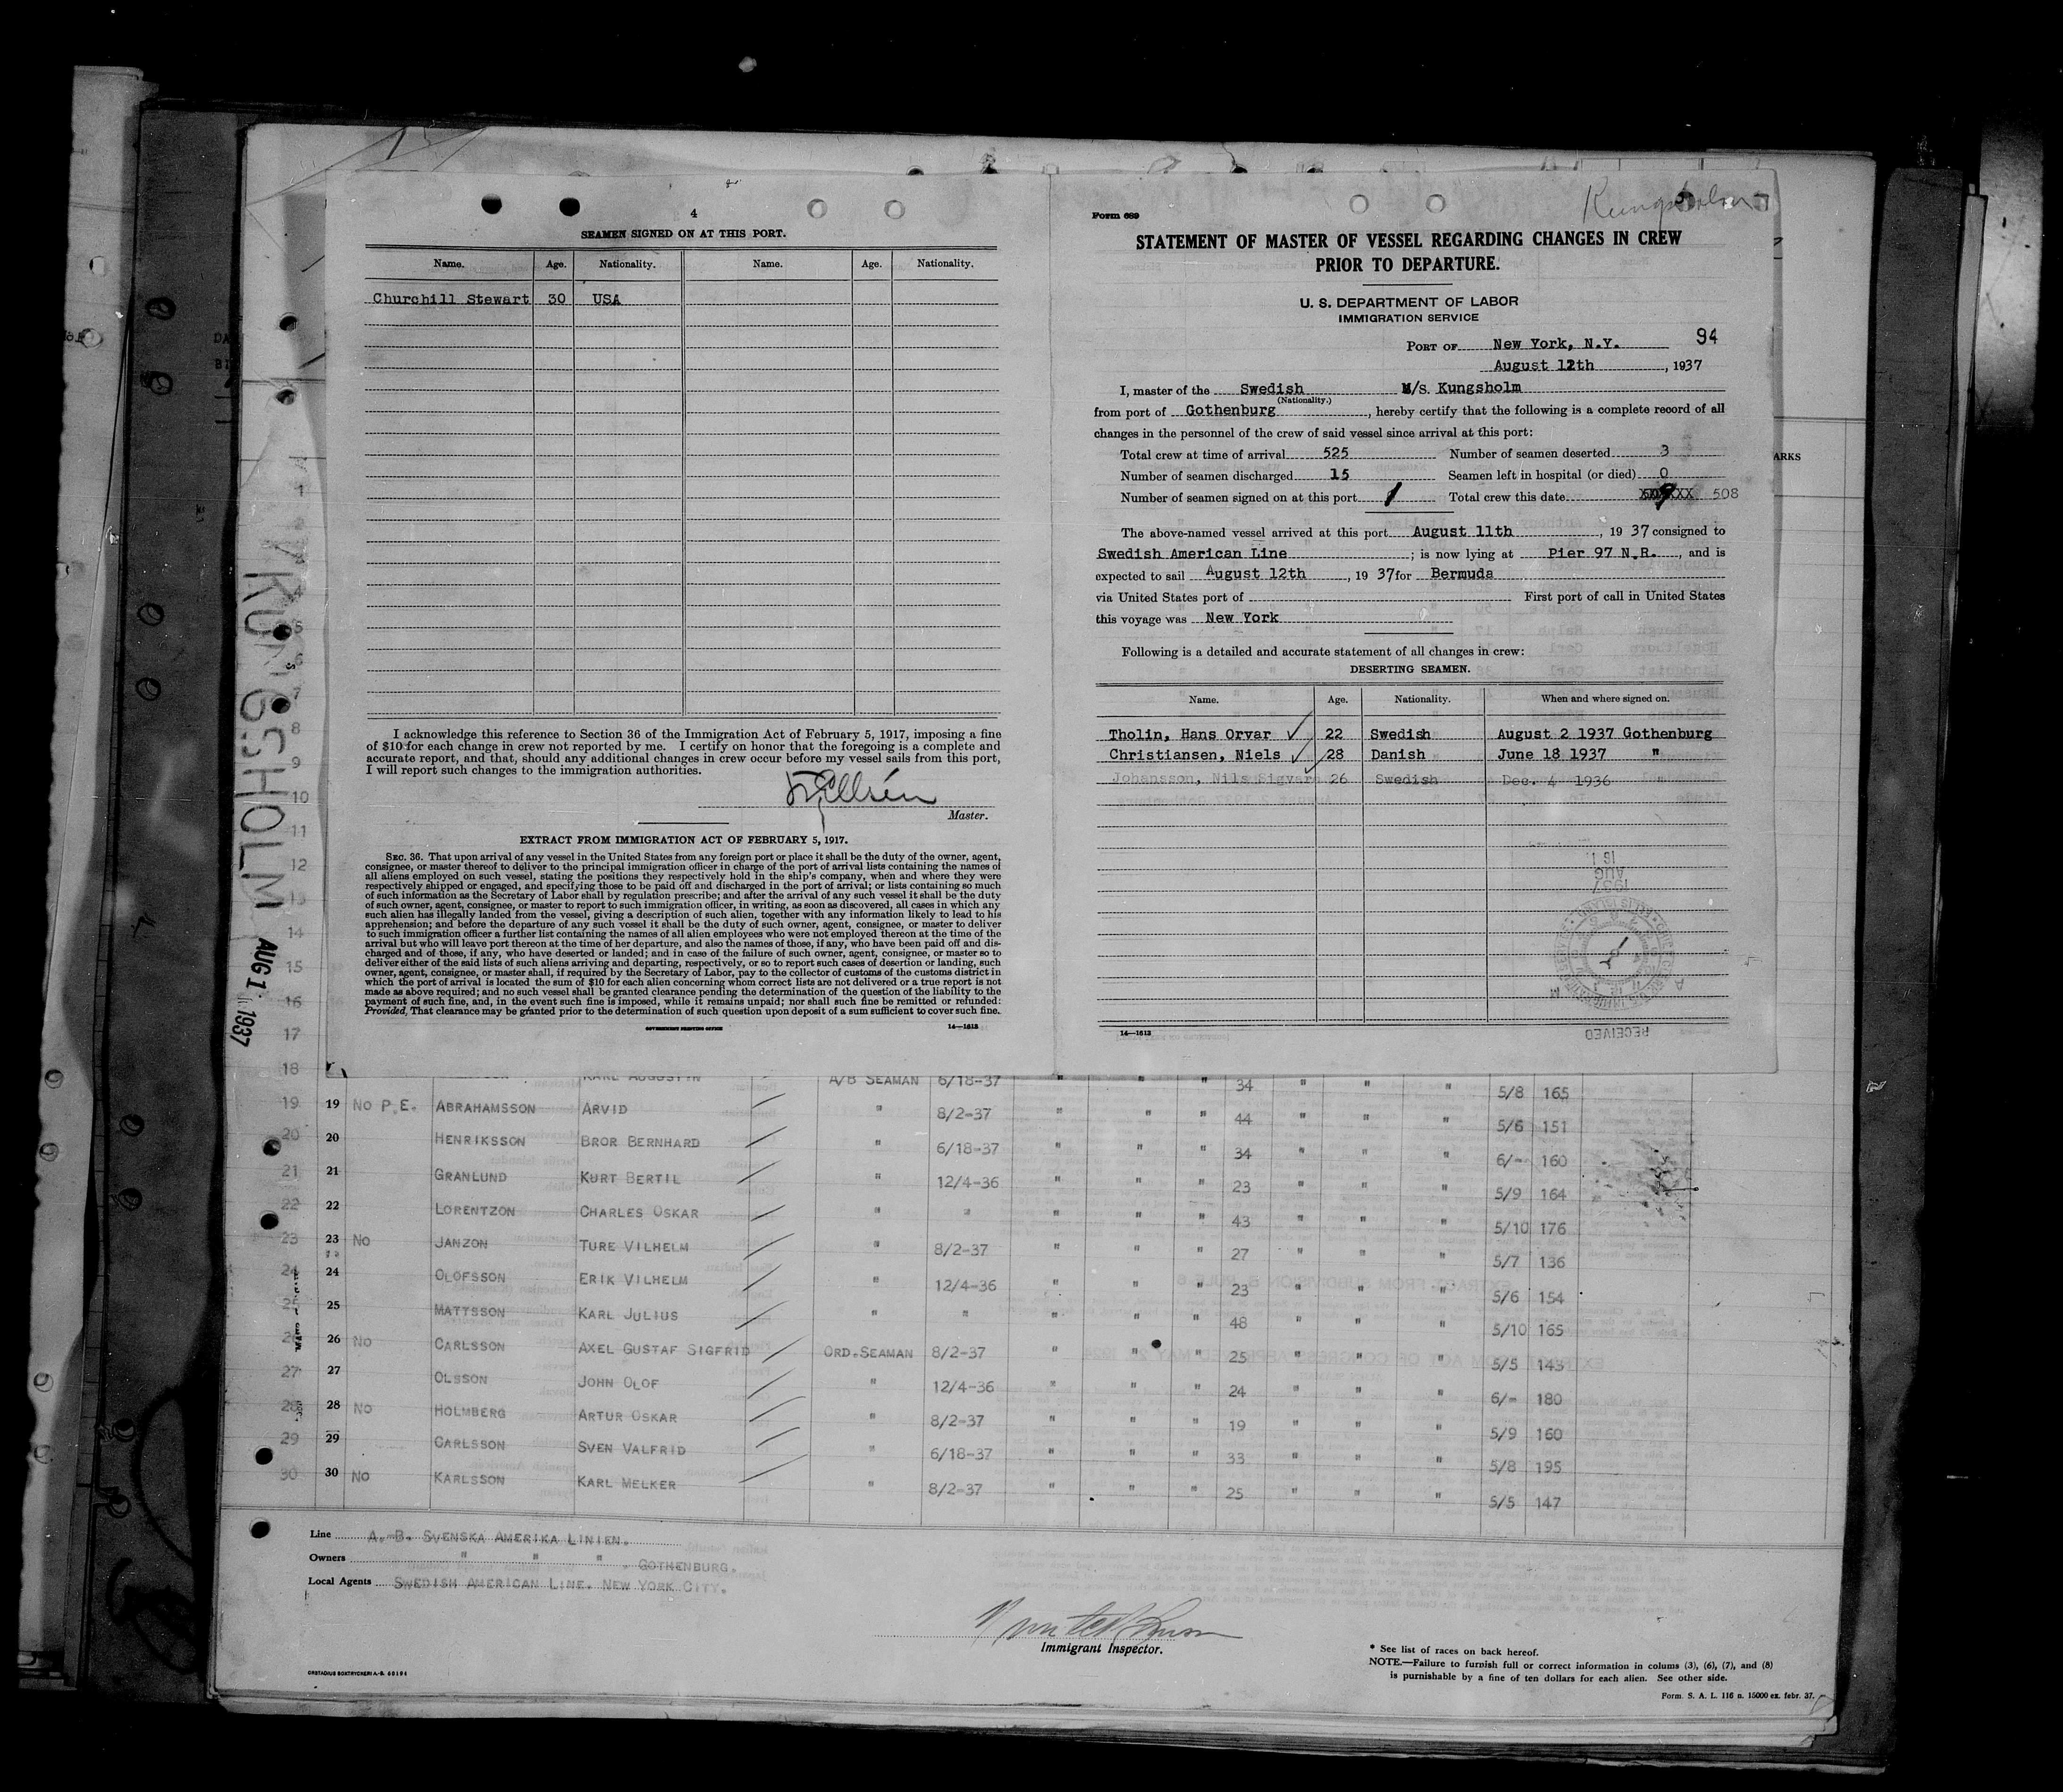 4
SEAMEN SIGNED ON AT THIS PORT.
Name. Age. Nationality. Name. Age. Nationality.
Churchill Stewart 30 USA
I acknowledge this reference to Section 36 of the Immigration Act of February 5, 1917, imposing a fine
of $10 for each change in crew not reported by me. I certify on honor that the foregoing is a complete and
accurate report, and that, should any additional changes in crew occur before my vessel sails from this port,
I will report such changes to the immigration authorities.
Master.
EXTRACT FROM IMMIGRATION ACT OF FEBRUARY 5, 1917.
SEC. 36. That upon arrival of any vessel in the United States from any foreign port or place it shall be the duty of the owner, agent,
consignee, or master thereof to deliver to the principal immigration officer in charge of the port of arrival lists containing the names of
all aliens employed on such vessel, stating the positions they respectively hold in the ship's company, when and where they were
respectively shipped or engaged, and specifying those to be paid off and discharged in the port of arrival; or lists containing so much
of such information as the Secretary of Labor shall by regulation prescribe; and after the arrival of any such vessel it shall be the duty
of such owner, agent, consignee, or master to report to such immigration officer, in writing, as soon as discovered, all cases in which any
such alien has illegally landed from the vessel, giving a description of such alien, together with any information likely to lead to his
apprehension; and before the departure of any such vessel it shall be the duty of such owner, agent, consignee, or master to deliver
to such immigration officer a further list containing the names of all alien employees who were not employed thereon at the time of the
arrival but who will leave port thereon at the time of her departure, and also the names of those, if any, who have been paid off and dis-
charged and of those, if any, who have deserted or landed; and in case of the failure of such owner, agent, consignee, or master so to
deliver either of the said lists of such aliens arriving and departing, respectively, or so to report such cases of desertion or landing, such
owner, agent, consignee, or master shall, if required by the Secretary of Labor, pay to the collector of customs of the customs district in
which the port of arrival is located the sum of $10 for each alien concerning whom correct lists are not delivered or a true report is not
made as above required; and no such vessel shall be granted clearance pending the determination of the question of the liability to the
payment of such fine, and, in the event such fine is imposed, while it remains unpaid; nor shall such fine be remitted or refunded:
Provided, That clearance may be granted prior to the determination of such question upon deposit of a sum sufficient to cover such fine.
GOVERNMENT PRINTING OFFICE 14—1613
Kungsholm
Form 689
STATEMENT OF MASTER OF VESSEL REGARDING CHANGES IN CREW
PRIOR TO DEPARTURE.
U. S. DEPARTMENT OF LABOR
IMMIGRATION SERVICE
94
PORT OF New York, N.Y.
August 12th, 1937
I, master of the Swedish M/S. Kungsholm
(Nationality.)
from port of Gothenburg, hereby certify that the following is a complete record of all
changes in the personnel of the crew of said vessel since arrival at this port:
Total crew at time of arrival 525 Number of seamen deserted 3
Number of seamen discharged 15 Seamen left in hospital (or died) 0
Number of seamen signed on at this port 1 Total crew this date 508
The above-named vessel arrived at this port August 11th, 19 37 consigned to
Swedish American Line; is now lying at Pier 97 N.R., and is
expected to sail August 12th, 19 37 for Bermuda
via United States port of First port of call in United States
this voyage was New York
Following is a detailed and accurate statement of all changes in crew:
DESERTING SEAMEN.
Name. Age. Nationality. When and where signed on.
Tholin, Hans Orvar 22 Swedish August 2 1937 Gothenburg
Christiansen, Niels 28 Danish June 18 1937 "
Johansson, Nils Sigvard 26 Swedish Dec. 4 1936
RECEIVED
14—1613
ARKS
KUNGSHOLM AUG 1 1937
1
2
4
5
6
7
8
9
10
11
12
13
14
15
16
17
18 KARL AUGUSTIN A/B SEAMAN 6/18-37 34 " " " 5/8 165
19 19 No P.E. ABRAHAMSSON ARVID " 8/2-37 " " " 44 " " " 5/6 151
20 20 HENRIKSSON BROR BERNHARD " 6/18-37 " " " 34 " " " 6/- 160
21 21 GRANLUND KURT BERTIL " 12/4-36 " " " 23 " " " 5/9 164
22 22 LORENTZON CHARLES OSKAR " " " " " 43 " " " 5/10 176
23 23 No JANZON TURE VILHELM " 8/2-37 " " " 27 " " " 5/7 136
24 24 OLOFSSON ERIK VILHELM " 12/4-36 " " " 23 " " " 5/6 154
25 25 MATTSSON KARL JULIUS " " " " " 48 " " " 5/10 165
26 26 No CARLSSON AXEL GUSTAF SIGFRID ORD. SEAMAN 8/2-37 " " " 25 " " " 5/5 143
27 27 OLSSON JOHN OLOF " 12/4-36 " " " 24 " " " 6/- 180
28 28 No HOLMBERG ARTUR OSKAR " 8/2-37 " " " 19 " " " 5/9 160
29 29 CARLSSON SVEN VALFRID " 6/18-37 " " " 33 " " " 5/8 195
30 30 No KARLSSON KARL MELKER " 8/2-37 " " " 25 " " " 5/5 147
Line A.-B. SVENSKA AMERIKA LINIEN.
Owners " " " . GOTHENBURG.
Local Agents SWEDISH AMERICAN LINE. NEW YORK CITY.
Immigrant Inspector.
* See list of races on back hereof.
NOTE.—Failure to furnish full or correct information in colums (3), (6), (7), and (8)
is punishable by a fine of ten dollars for each alien. See other side.
ORSTADIUS BOKTRYCKERI A.-B. 60194
Form. S. A. L. 116 n. 15000 ex. febr. 37.